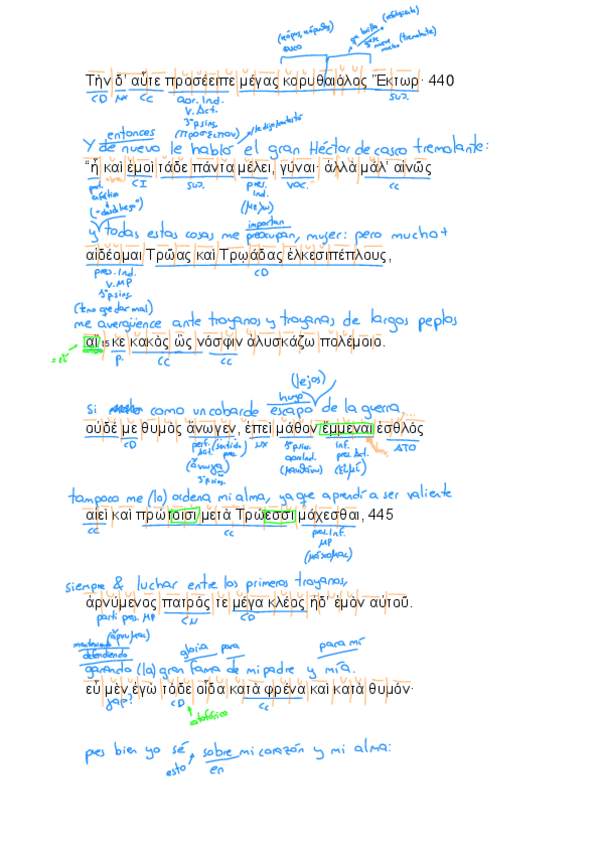 (κόρυς, κόρυθος)
casco
que brilla
(tremolante)
Τὴν δ' αὖτε προσέειπε μέγας κορυθαιόλος Ἕκτωρ· 440
CD CC aor. Ind. suj.
v. Act.
3ª p sing
entonces (προσεῖπον)
Y de nuevo le habló el gran Héctor de casco tremolante:
"ἦ καὶ ἐμοὶ τάδε πάντα μέλει, γύναι· ἀλλὰ μάλ' αἰνῶς
CI suj. pres. voc. cc
Ind.
(μέλω)
importan
y todas estas cosas me preocupan, mujer: pero mucho +
αἰδέομαι Τρῶας καὶ Τρῳάδας ἑλκεσιπέπλους,
pres. Ind. CD
v. MP
(tno quedar mal)
me avergüence ante troyanos y troyanas de largos peplos
αἴ 15 κε κακὸς ὣς νόσφιν ἀλυσκάζω πολέμοιο.
p. cc cc
(lejos)
huyo
si como un cobarde escapo de la guerra,...
οὐδέ με θυμὸς ἄνωγεν, ἐπεὶ μάθον ἔμμεναι ἐσθλὸς
CD perf. Inf. ATO
Act. aor Ind. pres. Act.
(ἄνωγα) (μανθάνω) (εἰμί)
tampoco me (lo) ordena mi alma, ya que aprendí a ser valiente
αἰεὶ καὶ πρώτοισι μετὰ Τρώεσσι μάχεσθαι, 445
cc cc pres. Inf.
MP
(μάχομαι)
siempre & luchar entre los primeros troyanos,
ἀρνύμενος πατρός τε μέγα κλέος ἠδ' ἐμὸν αὐτοῦ.
parti pres. MP CN CD
(ἄρνυμαι)
defendiendo gloria para para mí
ganando (la) gran fama de mi padre y mía.
εὖ μὲν ἐγὼ τάδε οἶδα κατὰ φρένα καὶ κατὰ θυμόν·
γαρ? CD cc
catafórico
pes bien yo sé, sobre mi corazón y mi alma:
esto en